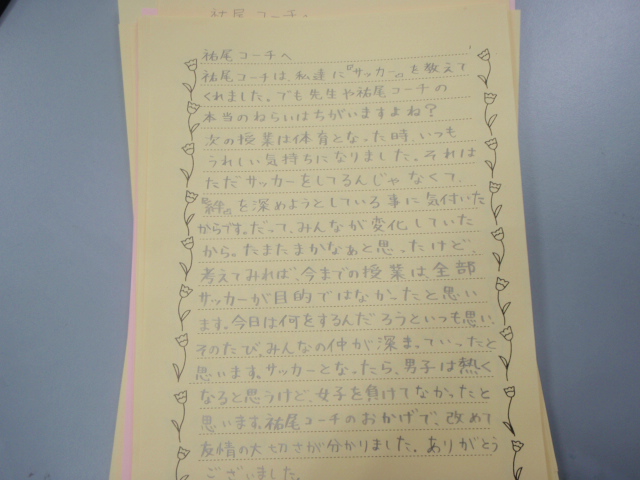 祐尾コーチへ
祐尾コーチへ
祐尾コーチは、私達に『サッカー』を教えて
くれました。でも先生や祐尾コーチの
本当のねらいはちがいますよね?
次の授業は体育となった時、いつも
うれしい気持ちになりました。それは
ただサッカーをしてるんじゃなくて、
『絆』を深めようとしている事に気付いた
からです。だって、みんなが変化していた
から。たまたまかなぁと思ったけど、
考えてみれば、今までの授業は全部
サッカーが目的ではなかったと思い
ます。今日は何をするんだろうといつも思い、
そのたび、みんなの仲が深まっていったと
思います。サッカーとなったら、男子は熱く
なると思うけど、女子を負けてなかったと
思います。祐尾コーチのおかげで、改めて
友情の大切さが分かりました。ありがとう
ございました。